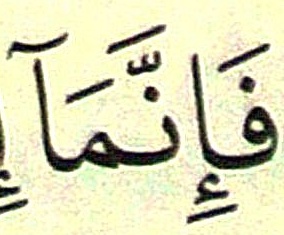 فَإِنَّمَآ